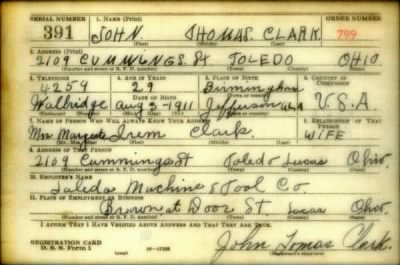 SERIAL NUMBER 1. NAME (Print) ORDER NUMBER
391 JOHN THOMAS CLARK 799
(First) (Middle) (Last)
2. ADDRESS (Print)
2109 CUMMINGS St. TOLEDO OHIO
(Number and street or R. F. D. number) (Town) (County) (State)
3. TELEPHONE 4. AGE IN YEARS 5. PLACE OF BIRTH 6. COUNTRY OF CITIZENSHIP
4259 29 Birmingham
DATE OF BIRTH
Walbridge Aug 2 - 1911 Jefferson ALA U.S.A
7. NAME OF PERSON WHO WILL ALWAYS KNOW YOUR ADDRESS 8. RELATIONSHIP OF THAT PERSON
Mrs Clark. WIFE
(Mr., Mrs., Miss) (First) (Middle) (Last)
9. ADDRESS OF THAT PERSON
2109 Cummings St Toledo Lucas Ohio
(Number and street or R. F. D. number) (Town) (County) (State)
10. EMPLOYER'S NAME
Toledo Machine & Tool Co.
11. PLACE OF EMPLOYMENT OR BUSINESS
Brown at Dorr St. Lucas Ohio.
(Number and street or R. F. D. number) (Town) (County) (State)
I AFFIRM THAT I HAVE VERIFIED ABOVE ANSWERS AND THAT THEY ARE TRUE.
REGISTRATION CARD
D. S. S. Form 1 16-17105
John Tomas Clark.
(Registrant's signature)